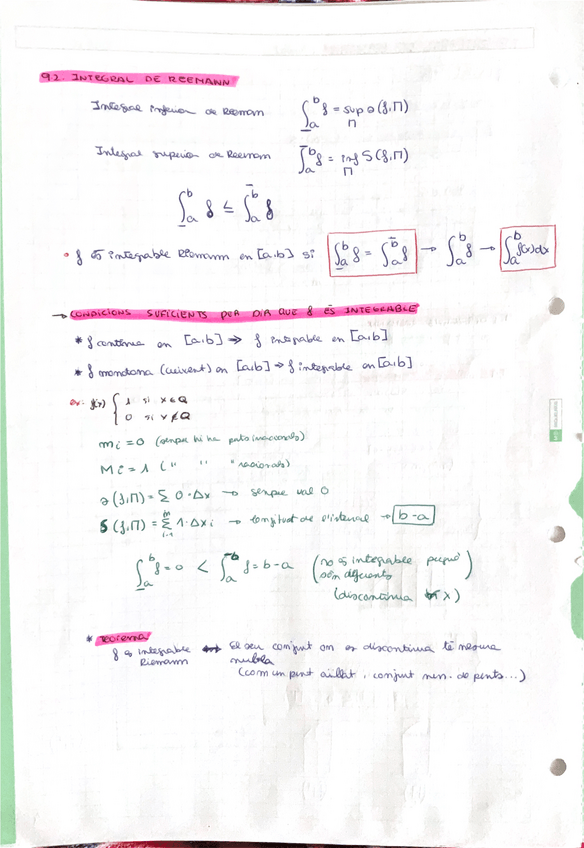 9.2. INTEGRAL DE REEMANN
Integral inferior de Reemann ∫_a^b f = sup s(f,Π)
Π
Integral superior de Reemann ∫_a^b f = inf S(f,Π)
Π
∫_a^b f ≤ ∫_a^b f
• f és integrable Riemann en [a,b] si ∫_a^b f = ∫_a^b f → ∫_a^b f → ∫_a^b f(x)dx
→ CONDICIONS SUFICIENTS PER DIR QUE f ÉS INTEGRABLE
* f contínua en [a,b] ⇒ f integrable en [a,b]
* f monótona (creixent) en [a,b] ⇒ f integrable en [a,b]
ex: f(x) { 1 si x ∈ Q
0 si x ∉ Q
mi = 0 (sempre hi ha punts irracionals)
Mi = 1 (" " " racionals)
s(f,Π) = Σ 0·Δx → sempre val 0
S(f,Π) = Σ_{i=1}^{n} 1·Δxi → longitud de l'interval → b-a
∫_a^b f = 0 < ∫_a^b f = b-a (no és integrable perquè
són diferents)
(discontínua ∀x)
* Teorema
f és integrable ⟺ El seu conjunt on es discontínua té mesura
Riemann nul·la
(com un punt aïllat, conjunt num. de punts...)